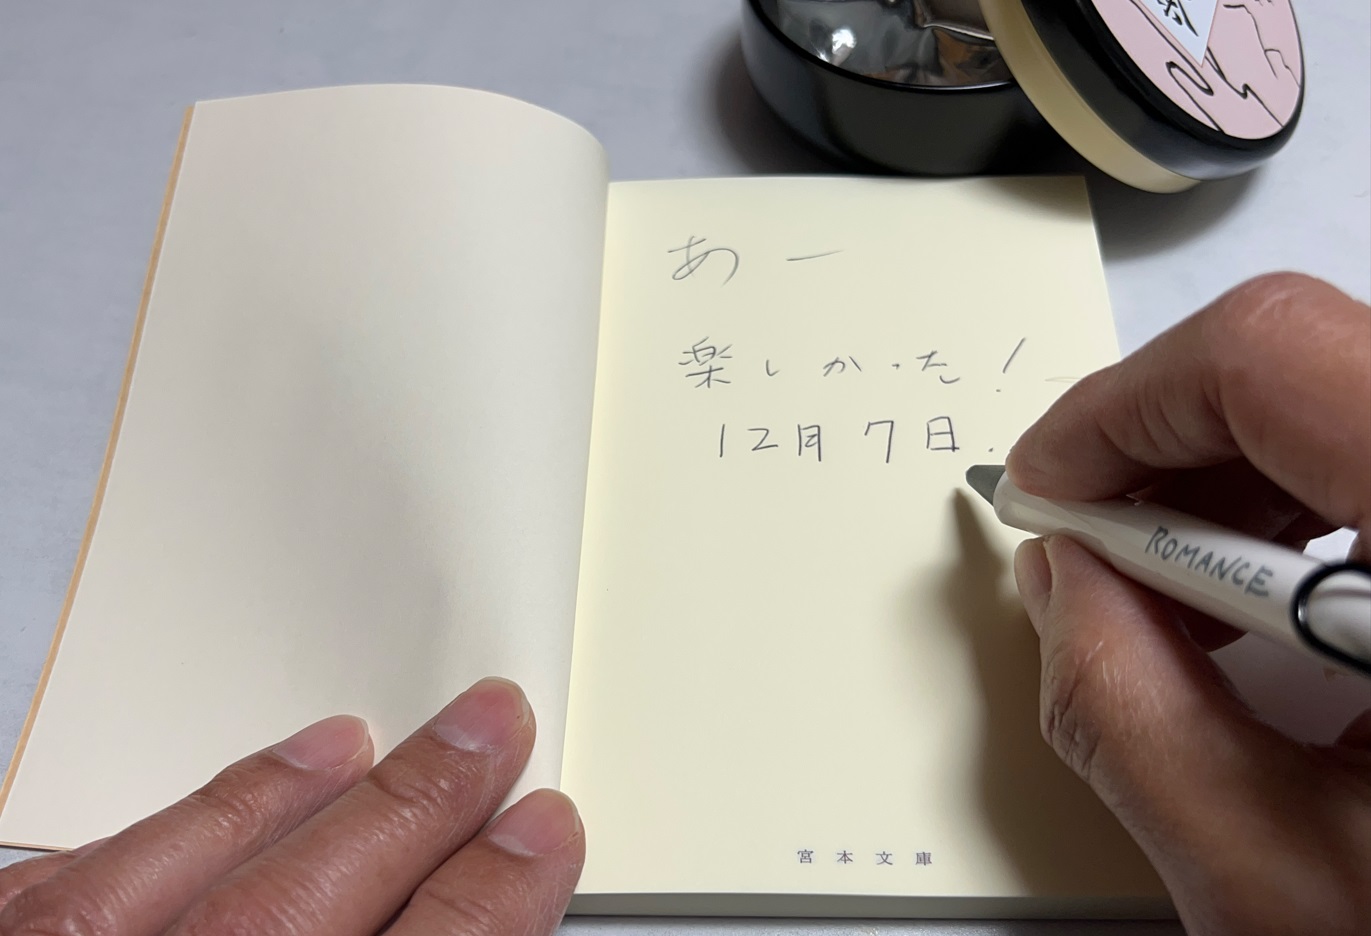 あー
楽しかった!
12月7日.
ROMANCE
宮本文庫